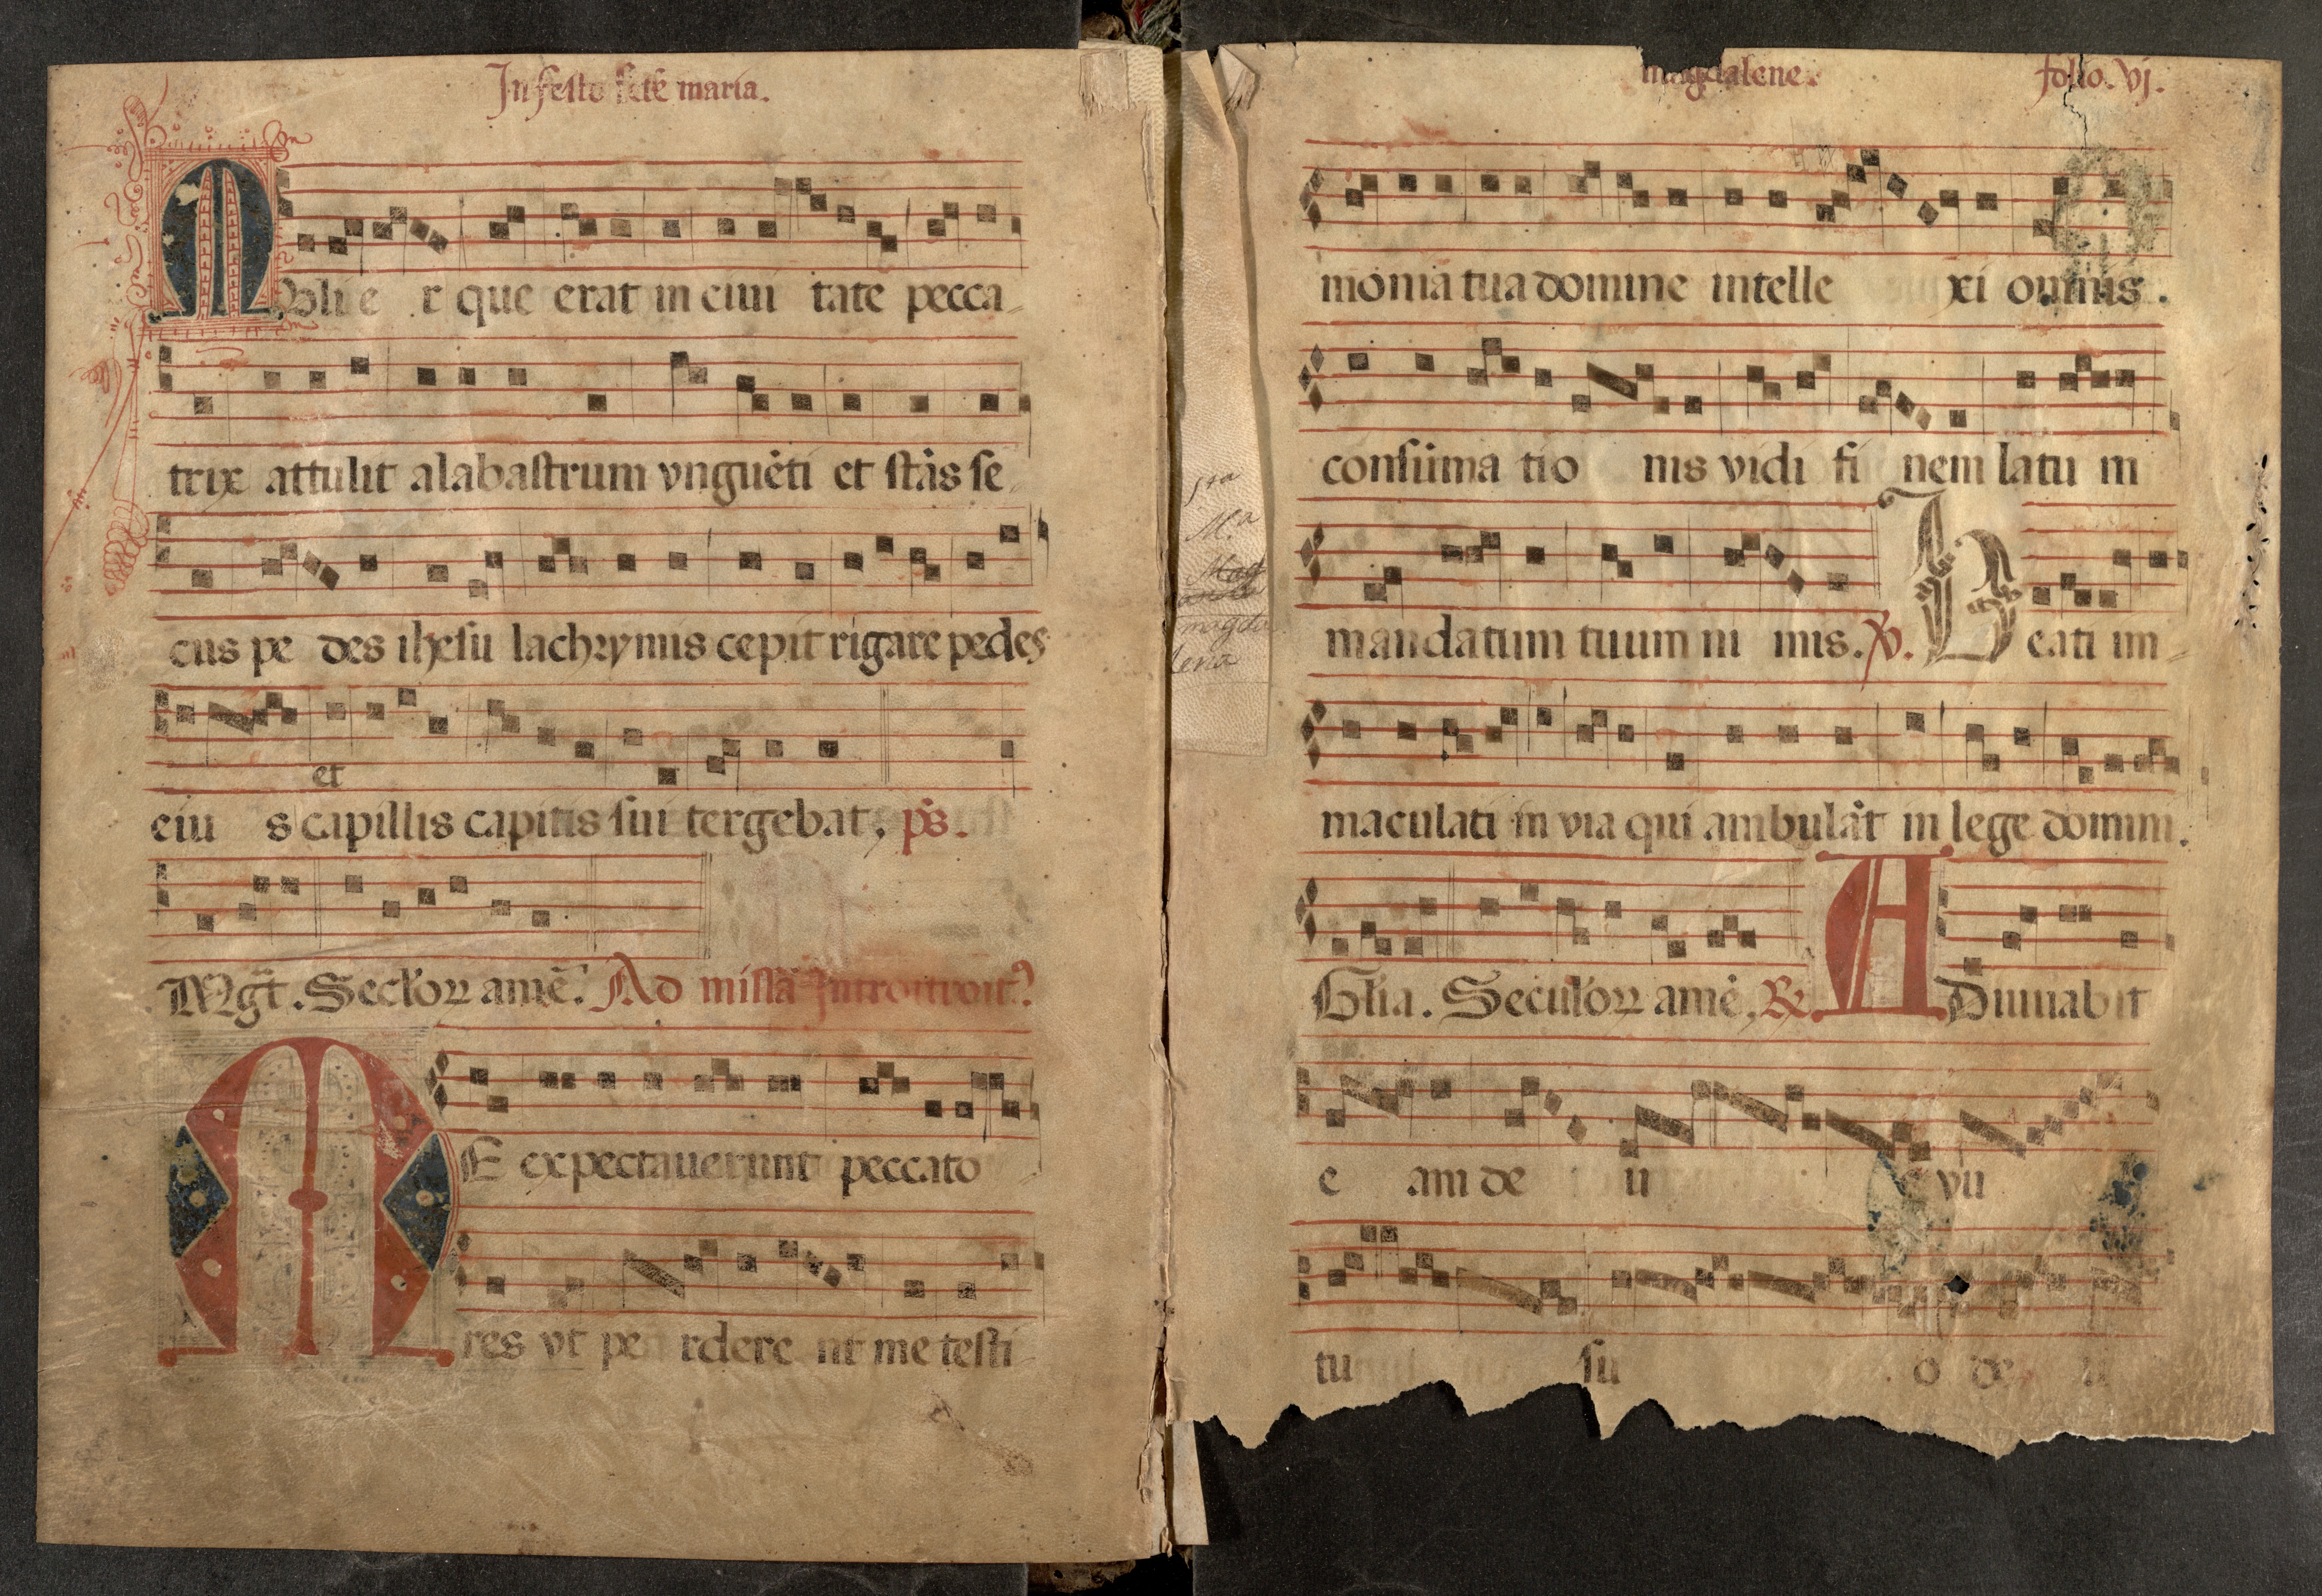 In festo scte maria.
Mulie r que erat in ciui tate pecca-
trix attulit alabastrum vnguēti et stās se-
cus pe des ihesu lachrymis cepit rigare pedes
et
eiu s capillis capitis sui tergebat, ps.
Mgt. Seclorꝝ amē. Ad missā Introitroit
ME expectauerunt peccato
res vt pe rdere nt me testi-
sta
Ma
Mag
magda
lena
magdalene. folio. vj.
monia tua domine intelle xi omnis.
consūma tio nis vidi fi nem latu m
mandatum tuum ni mis. ℣. Beati im-
maculati in via qui ambulāt in lege domini.
Glia. Seculorꝝ amē. ℟. ADiuuabit
e am de u s vu
tu su o de